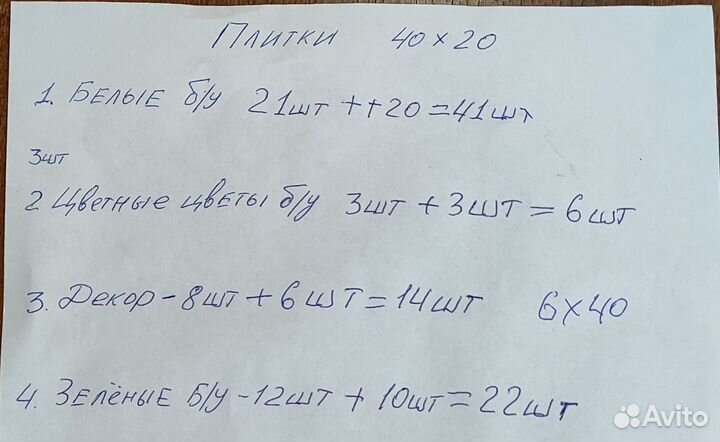 Плитки 40×20
1. Белые б/у 21шт ++20=41шт
3шт
2 Цветные цветы б/у 3шт +3шт = 6шт
3. Декор-8шт+6шт=14шт 6×40
4. Зелёные б/у-12шт + 10шт=22шт
Avito